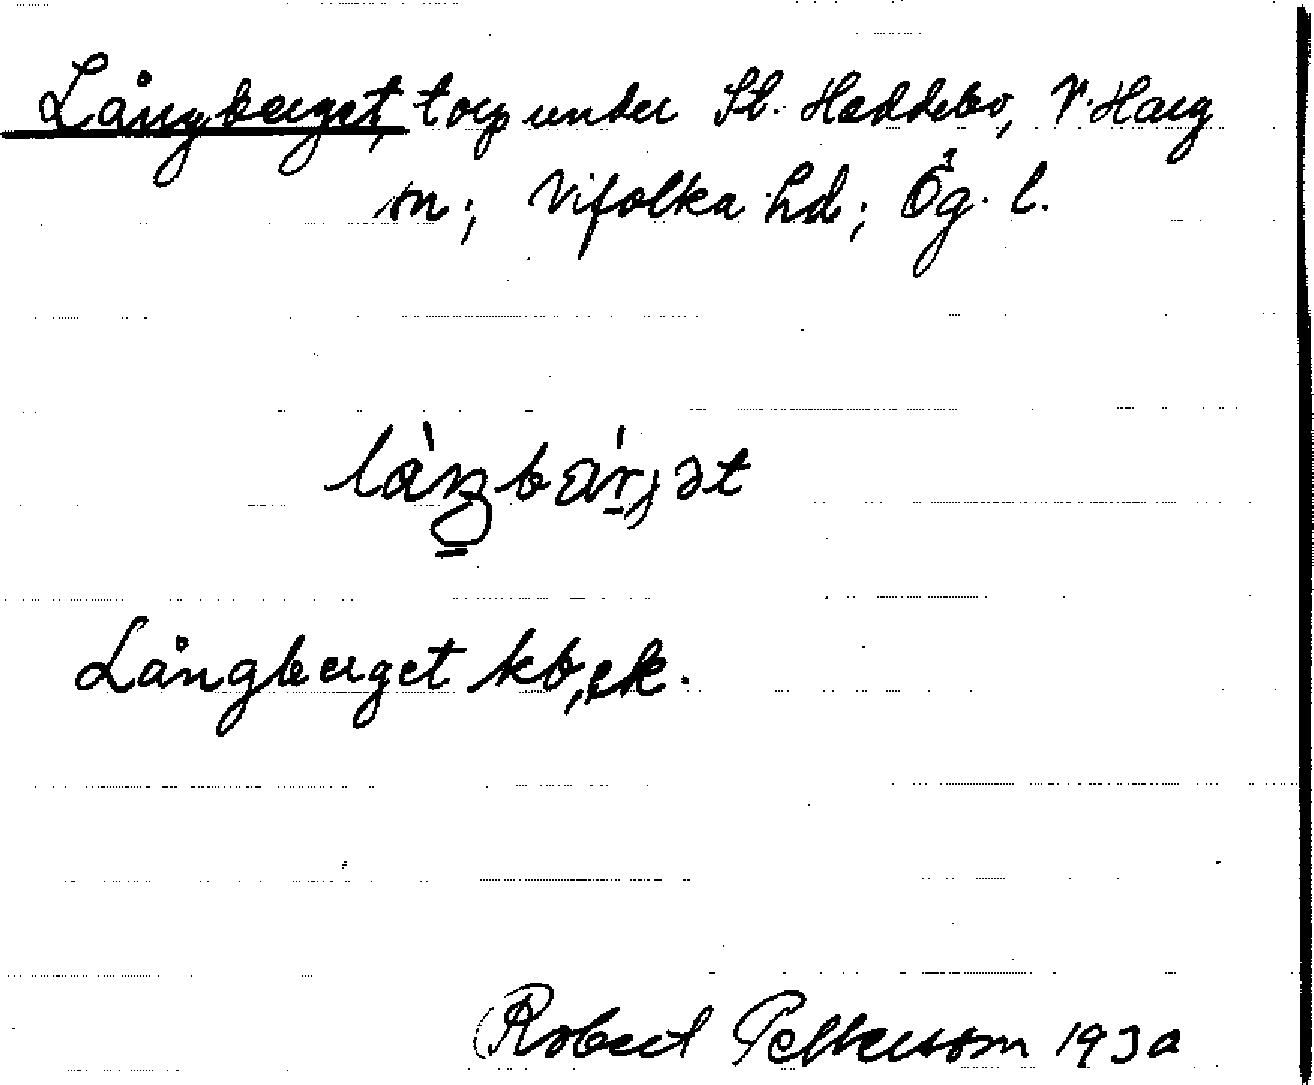 Långberget, torp under St. Haddebo, V. Harg
sn; Vifolka hd; Ög. l.
låŋbærjət
Långberget kb, ek.
Robert Pettersson 1930